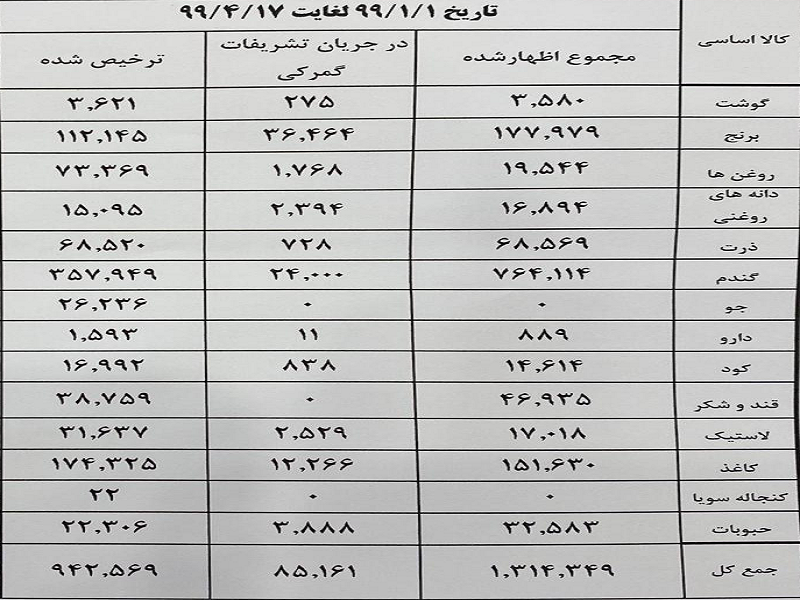 تاریخ ۹۹/۱/۱ لغایت ۹۹/۴/۱۷
کالا اساسی مجموع اظهارشده در جریان تشریفات گمرکی ترخیص شده
گوشت ۳,۵۸۰ ۲۷۵ ۳,۶۲۱
برنج ۱۷۷,۹۷۹ ۳۶,۴۶۴ ۱۱۲,۱۴۵
روغن ها ۱۹,۵۴۴ ۱,۷۶۸ ۷۳,۳۶۹
دانه های روغنی ۱۶,۸۹۴ ۲,۳۹۴ ۱۵,۰۹۵
ذرت ۶۸,۵۶۹ ۷۲۸ ۶۸,۵۲۰
گندم ۷۶۴,۱۱۴ ۲۴,۰۰۰ ۳۵۷,۹۴۹
جو ۰ ۰ ۲۶,۲۳۶
دارو ۸۸۹ ۱۱ ۱,۵۹۳
کود ۱۴,۶۱۴ ۸۳۸ ۱۶,۹۹۲
قند و شکر ۴۶,۹۳۵ ۰ ۳۸,۷۵۹
لاستیک ۱۷,۰۱۸ ۲,۵۲۹ ۳۱,۶۳۷
کاغذ ۱۵۱,۶۳۰ ۱۲,۲۶۶ ۱۷۴,۳۲۵
کنجاله سویا ۰ ۰ ۲۲
حبوبات ۳۲,۵۸۳ ۳,۸۸۸ ۲۲,۳۰۶
جمع کل ۱,۳۱۴,۳۴۹ ۸۵,۱۶۱ ۹۴۲,۵۶۹